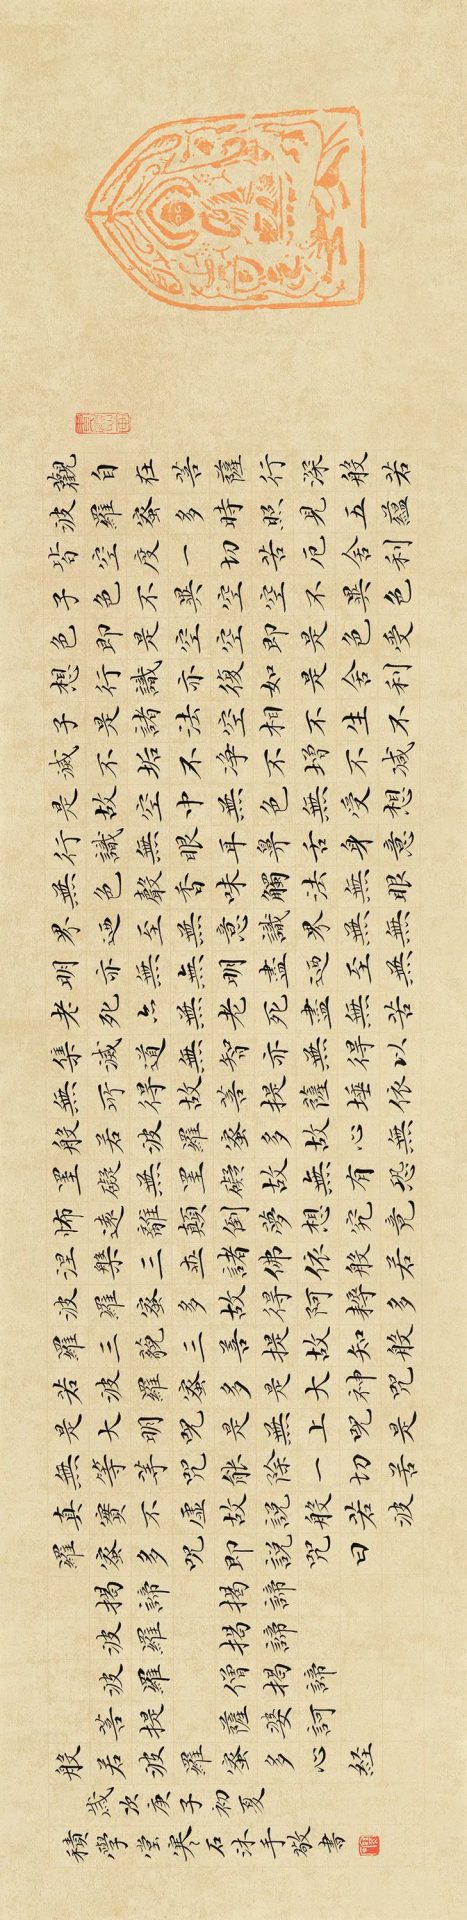 觀自在菩薩行深般若
波羅蜜多時照見五蘊
皆空度一切苦厄舍利
子色不異空空不異色
色即是空空即是色受
想行識亦復如是舍利
子是諸法空相不生不
滅不垢不净不增不減
是故空中無色無受想
行識無眼耳鼻舌身意
無色聲香味觸法無眼
界迺至無意識界無無
明亦無無明盡迺至無
老死亦無老死盡無苦
集滅道無智亦無得以
無所得故菩提薩埵依
般若波羅蜜多故心無
罣礙無罣礙故無有恐
怖遠離顛倒夢想究竟
涅槃三世諸佛依般若
波羅蜜多故得阿耨多
羅三藐三菩提故知般
若波羅蜜多是大神咒
是大明咒是無上咒是
無等等咒能除一切苦
真實不虛故說般若波
羅蜜多咒即說咒曰
揭諦揭諦
波羅揭諦
波羅僧揭諦
菩提薩婆訶
般若波羅蜜多心経
歲次庚子初夏
積學堂寒石沐手敬書